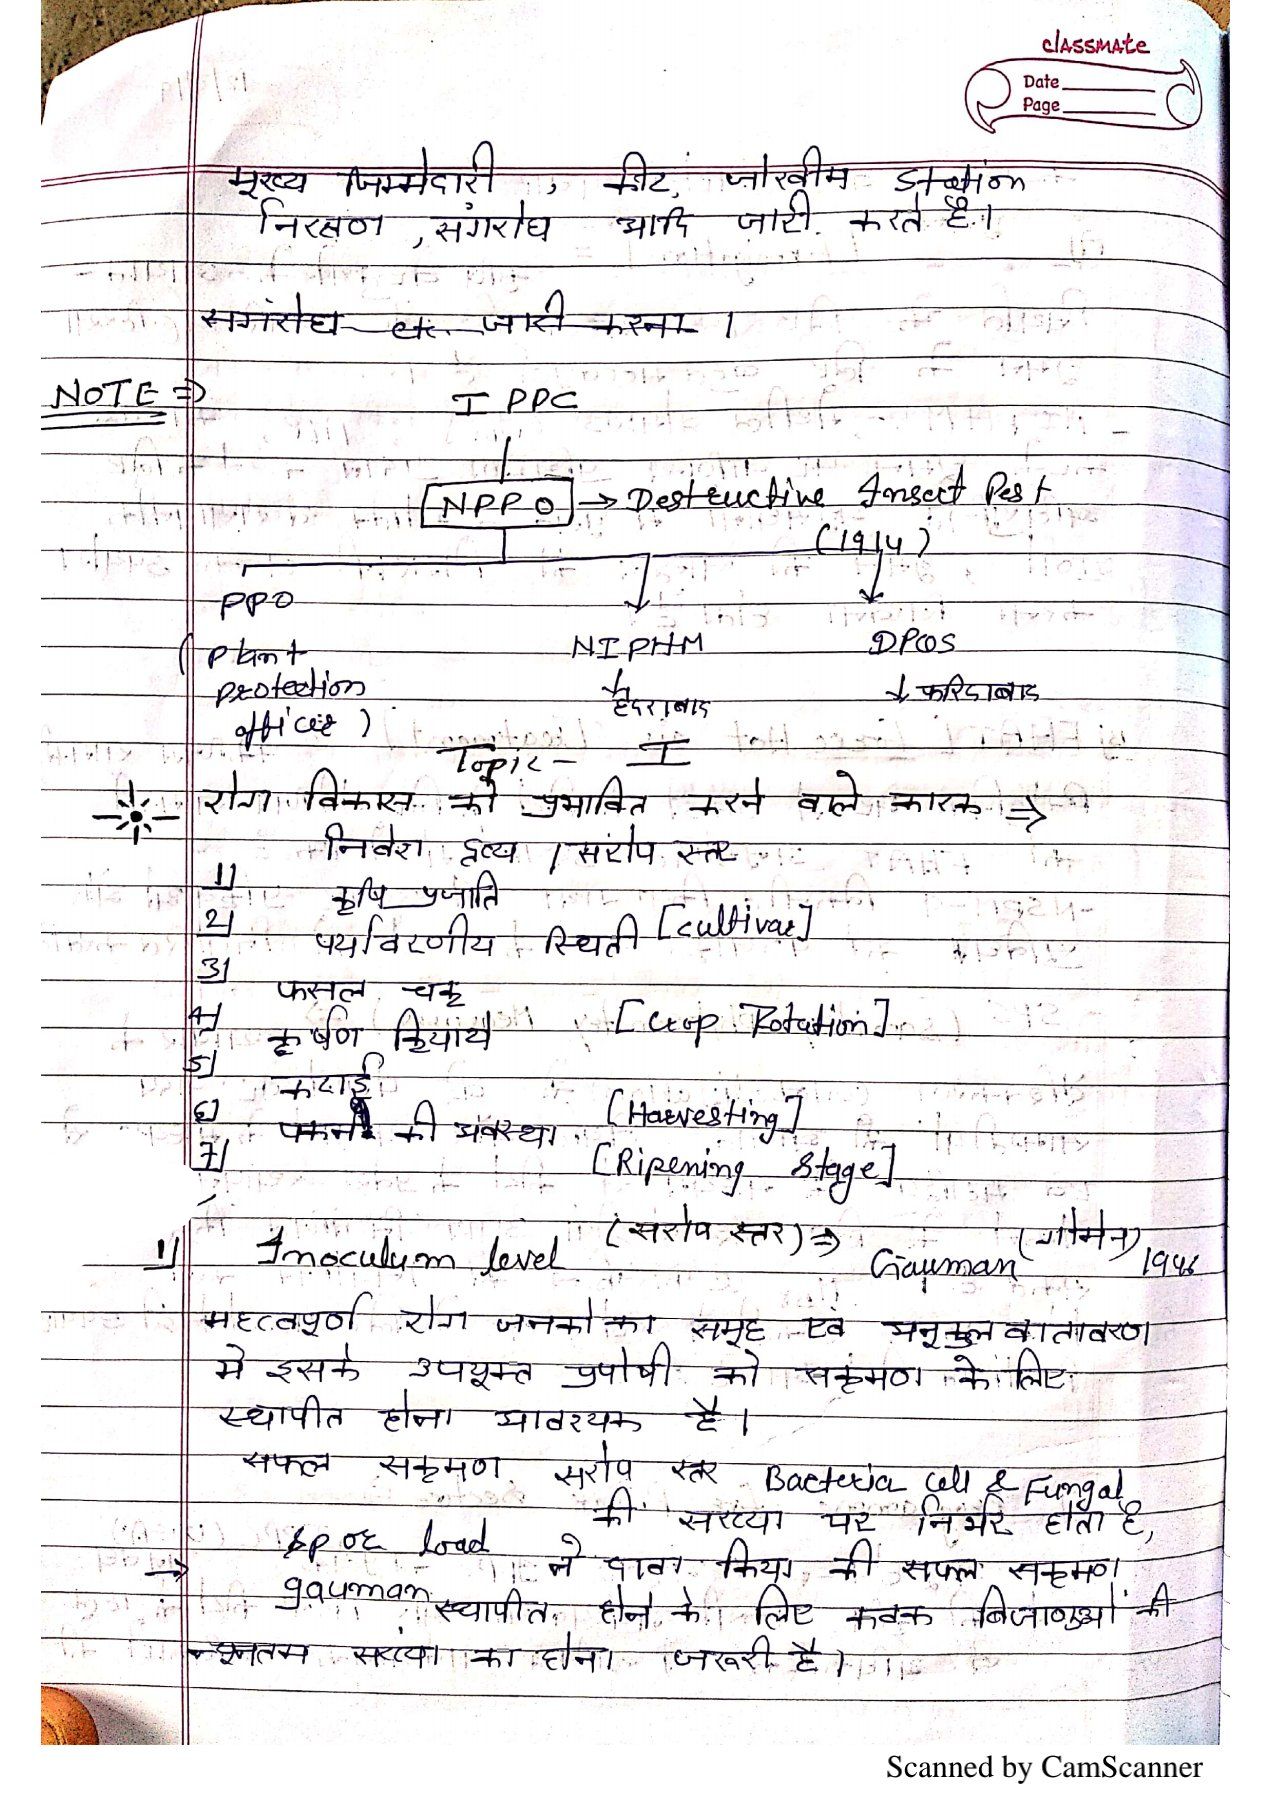 classmate
Date
Page
मूख्य जिम्मेदारी , कीट, जोखीम station
निरक्षण , संगरोध आदि जारी. करते है।
समंरोध etc. जारी करना ।
NOTE ⇒
I PPC
NPPO → Destructive Insect Pest
(1914)
PPO NIPHM DPQS
( Plant protection officer )
↓ हैदराबाद ↓ फरिदाबाद
Topic - I
रोग विकास को प्रभावित करने वाले कारक ⇒
1) निवेश द्रव्य / सरोप स्तर
2) कृषि प्रजाति [cultivar]
3) पर्यावरणीय स्थिती
4) फसल चक्र [crop Rotation]
5) कृर्षण क्रियाये
6) कटाई [Harvesting]
7) पकने की अवस्था [Ripening Stage]
1) Inoculum level (सरोप स्तर) ⇒ Gayman (गोमेन) 1946
महत्वपूर्ण रोग जनको का समूह एवं अनूकुल वातावरण
मे इसके उपयूक्त प्रपोषी को सक्रमण के लिए
स्थापीत होना आवश्यक है।
सफल सक्रमण सरोप स्तर Bacteria cell & Fungal
spor load की सख्या पर निर्भर होता है,
→ gauman ने दावा किया की सफल सक्रमण
स्थापीत होने के लिए कवक बिजाणुओ की
न्यूनतम सख्या का होना जरूरी है।
Scanned by CamScanner